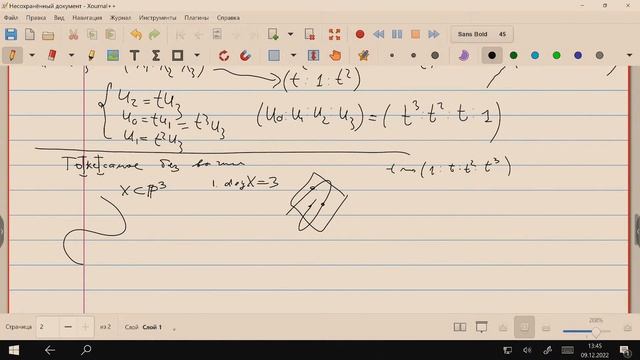 Несохранённый документ - Xournal++
Файл Правка Вид Навигация Журнал Инструменты Плагины Справка
Sans Bold 45
(t : 1 : t²)
u₂ = tu₃
u₀ = tu₁ = t³u₃
u₁ = t²u₃
(u₀ : u₁ : u₂ : u₃) = (t³ : t² : t : 1)
без
t ↦ (1 : t : t² : t³)
X ⊂ ℙ³
1. deg X = 3
208%
Страница 2 из 2 Слой Слой 1
13:45
09.12.2022